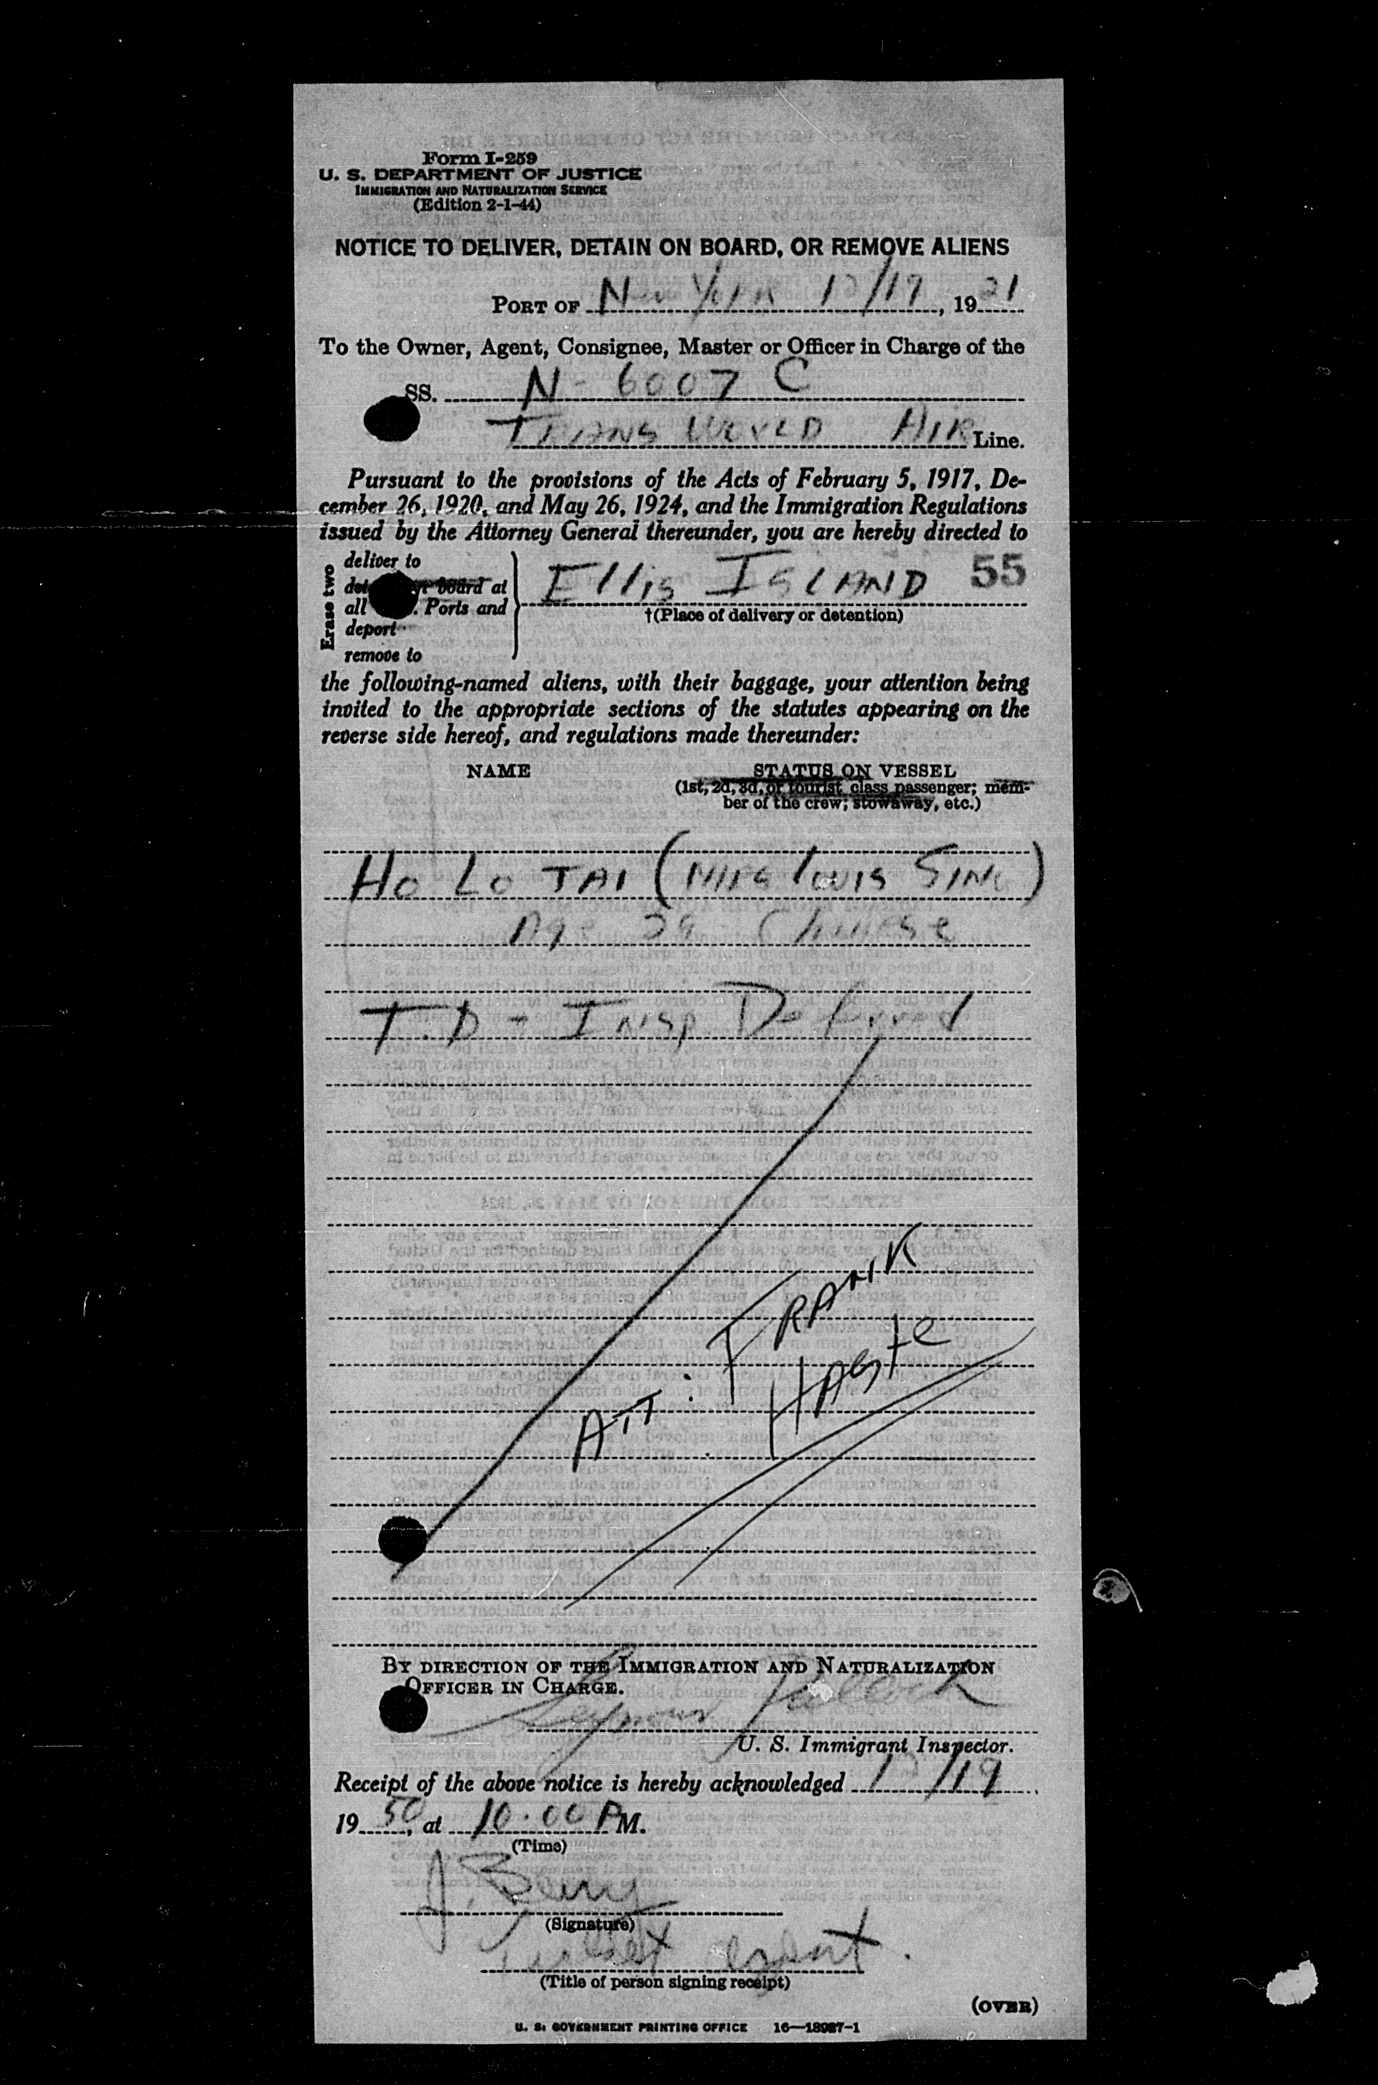 Form I-259
U. S. DEPARTMENT OF JUSTICE
IMMIGRATION AND NATURALIZATION SERVICE
(Edition 2-1-44)
NOTICE TO DELIVER, DETAIN ON BOARD, OR REMOVE ALIENS
PORT OF New York 12/19, 19 21
To the Owner, Agent, Consignee, Master or Officer in Charge of the
SS. N-6007 C
TRANS WORLD AIR Line.
Pursuant to the provisions of the Acts of February 5, 1917, De-
cember 26, 1920, and May 26, 1924, and the Immigration Regulations
issued by the Attorney General thereunder, you are hereby directed to
Erase two
deliver to
board at
all Ports and
deport
remove to
Ellis ISLAND 55
†(Place of delivery or detention)
the following-named aliens, with their baggage, your attention being
invited to the appropriate sections of the statutes appearing on the
reverse side hereof, and regulations made thereunder:
NAME STATUS ON VESSEL
(1st, 2d, 3d, or tourist class passenger; mem-
ber of the crew; stowaway, etc.)
Ho Lo TAI ( Louis SING)
Age 29 - Chinese
T.D - INSP
ATT: FRANK
HASte
BY DIRECTION OF THE IMMIGRATION AND NATURALIZATION
OFFICER IN CHARGE.
Seymour Pollock
U. S. Immigrant Inspector.
Receipt of the above notice is hereby acknowledged 12/19
19 50, at 10:00 PM.
(Time)
J. Berry
(Signature)
Ticket agent.
(Title of person signing receipt)
(OVER)
U. S. GOVERNMENT PRINTING OFFICE 16—18987-1